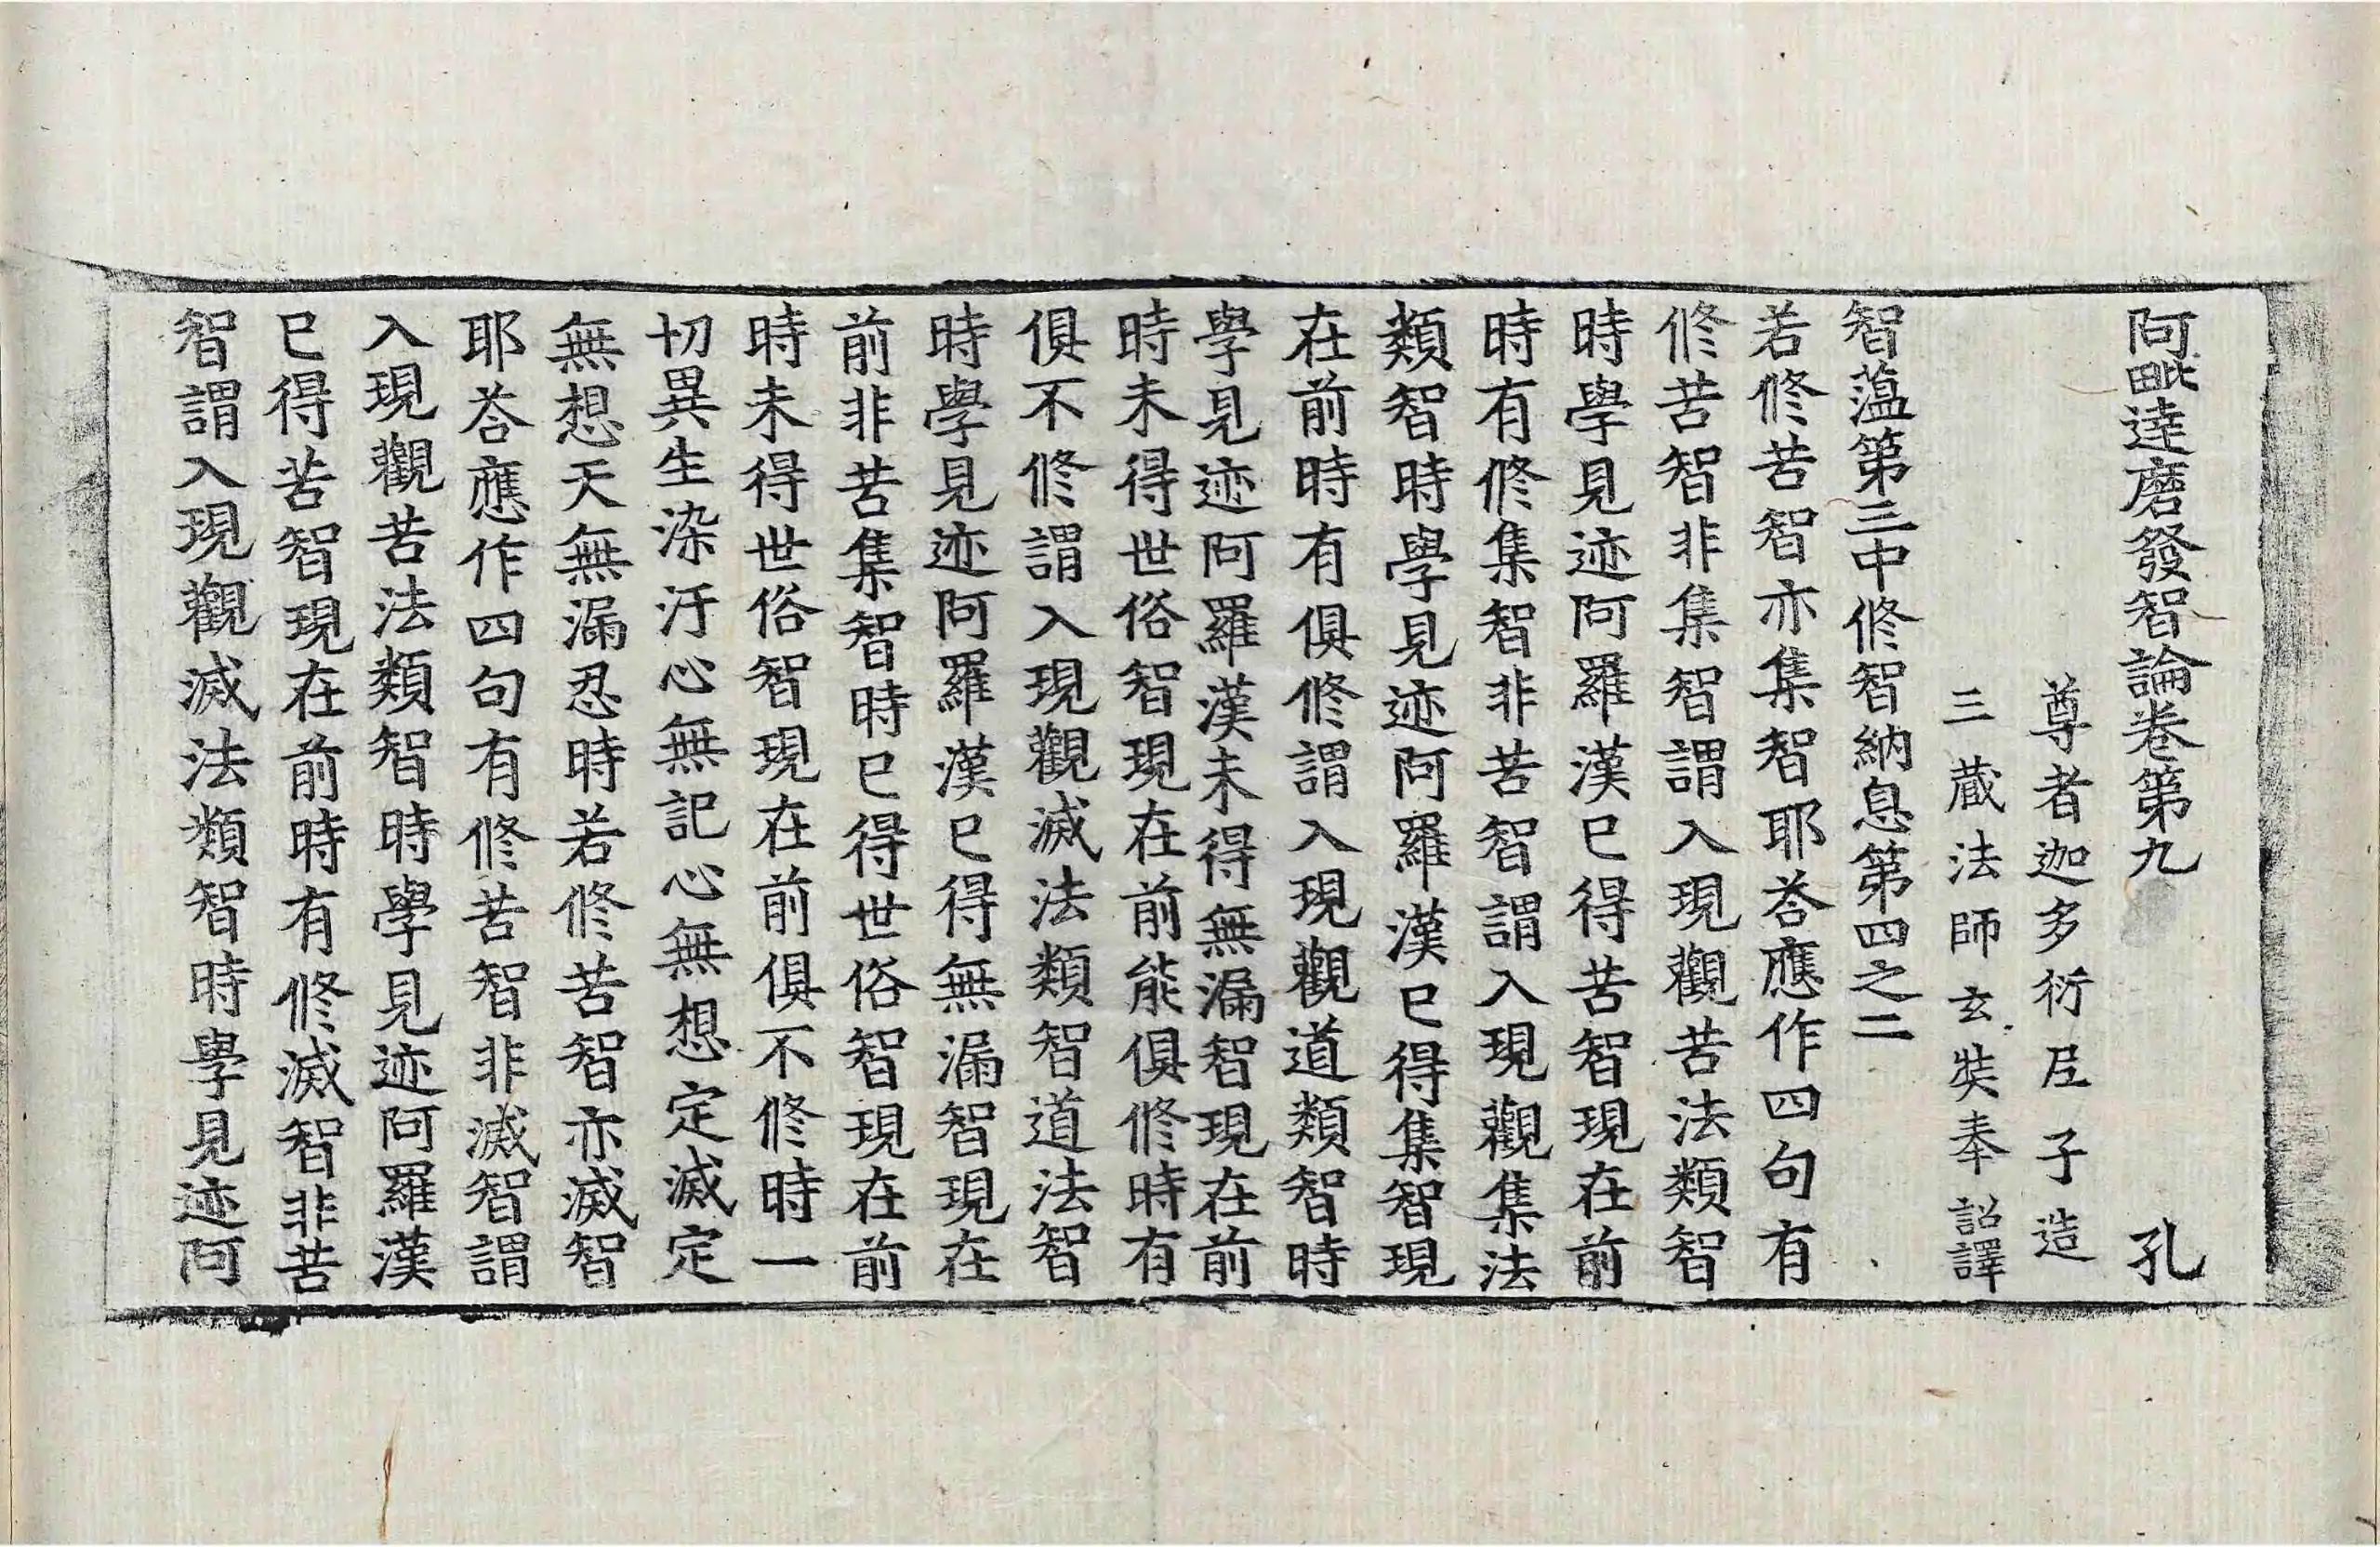 阿毗達磨發智論卷第九　孔
尊者迦多衍尼子造
三藏法師玄奘奉詔譯
智蕰第三中修智納息第四之二
若修苦智亦集智耶荅應作四句有
修苦智非集智謂入現觀苦法類智
時學見迹阿羅漢已得苦智現在前
時有修集智非苦智謂入現觀集法
類智時學見迹阿羅漢已得集智現
在前時有俱修謂入現觀道類智時
學見迹阿羅漢未得無漏智現在前
時未得世俗智現在前能俱修時有
俱不修謂入現觀滅法類智道法智
時學見迹阿羅漢已得無漏智現在
前非苦集智時已得世俗智現在前
時未得世俗智現在前俱不修時一
切異生染汙心無記心無想定滅定
無想天無漏忍時若修苦智亦滅智
耶荅應作四句有修苦智非滅智謂
入現觀苦法類智時學見迹阿羅漢
已得苦智現在前時有修滅智非苦
智謂入現觀滅法類智時學見迹阿